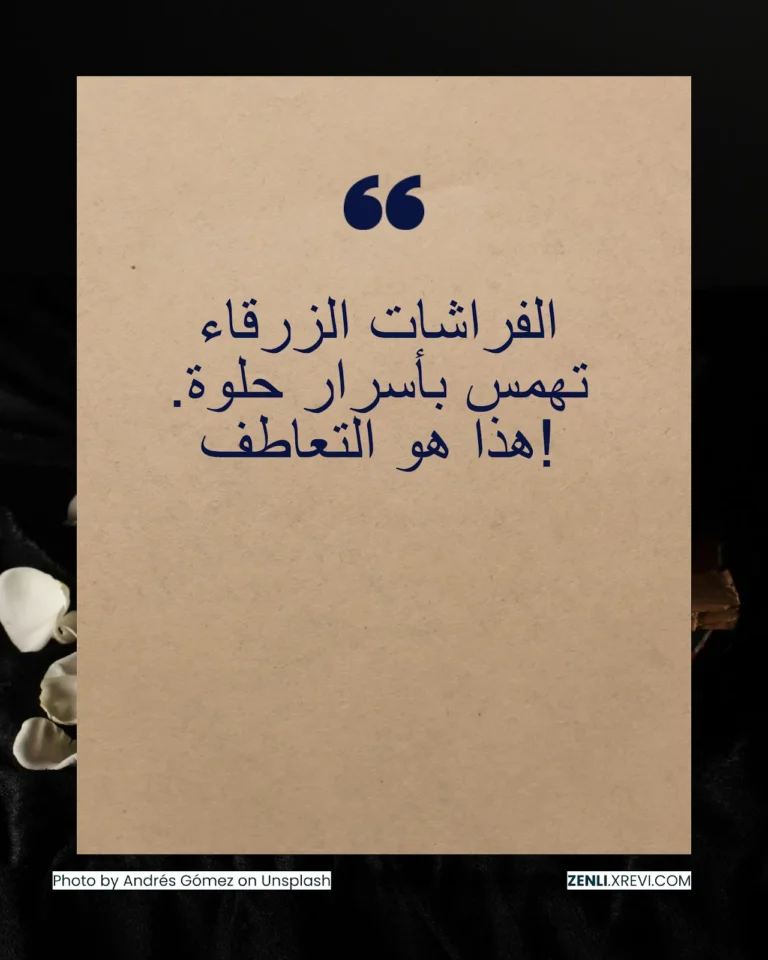 ❝
الفراشات الزرقاء
تهمس بأسرار حلوة.
!هذا هو التعاطف
Photo by Andrés Gómez on Unsplash
ZENLI.XREVI.COM